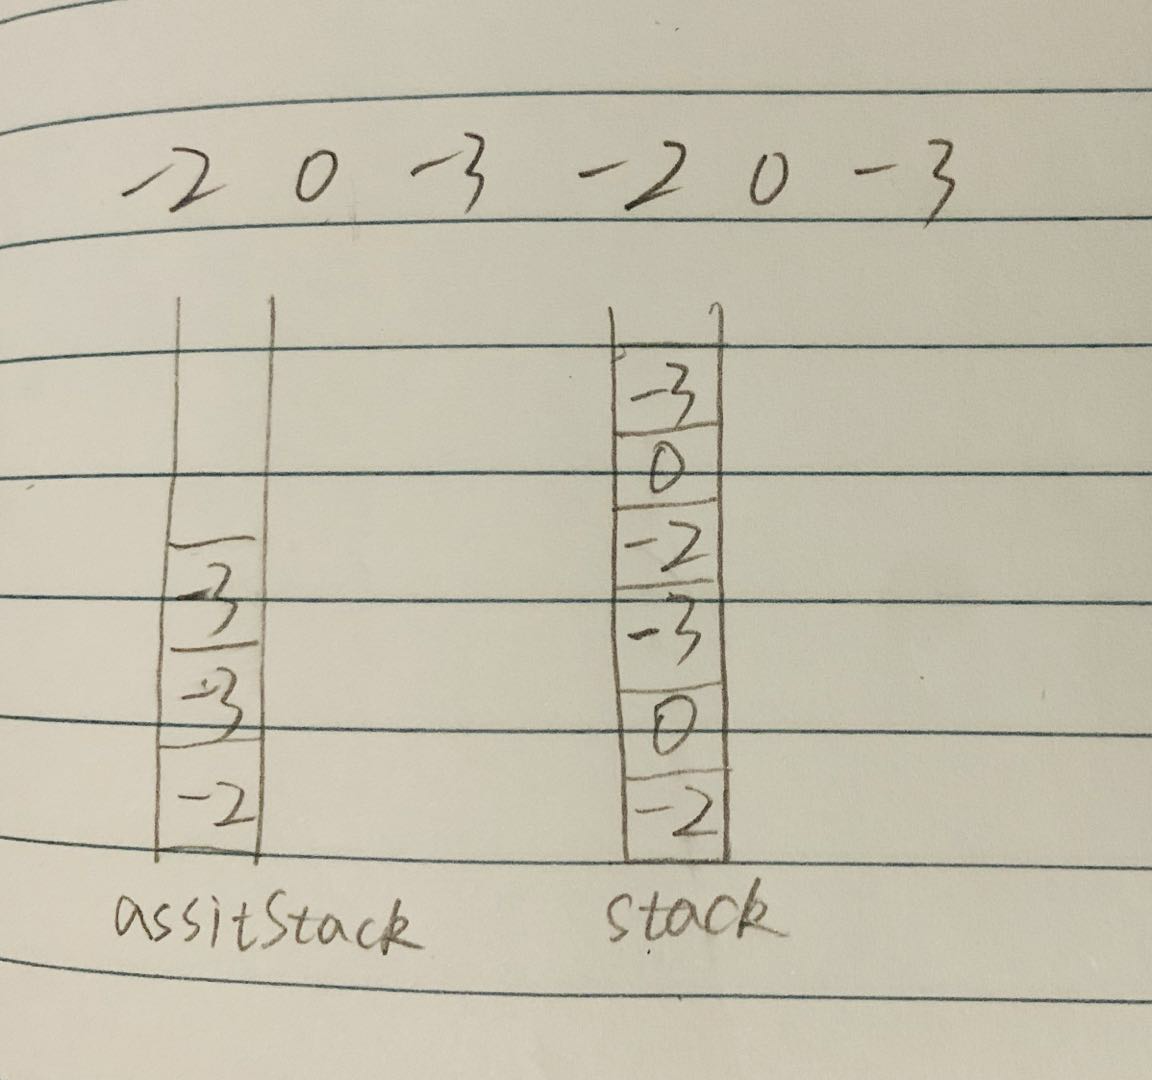 -2 0 -3 -2 0 -3
-3
0
-2
-3 -3
-3 0
-2 -2
assitStack stack